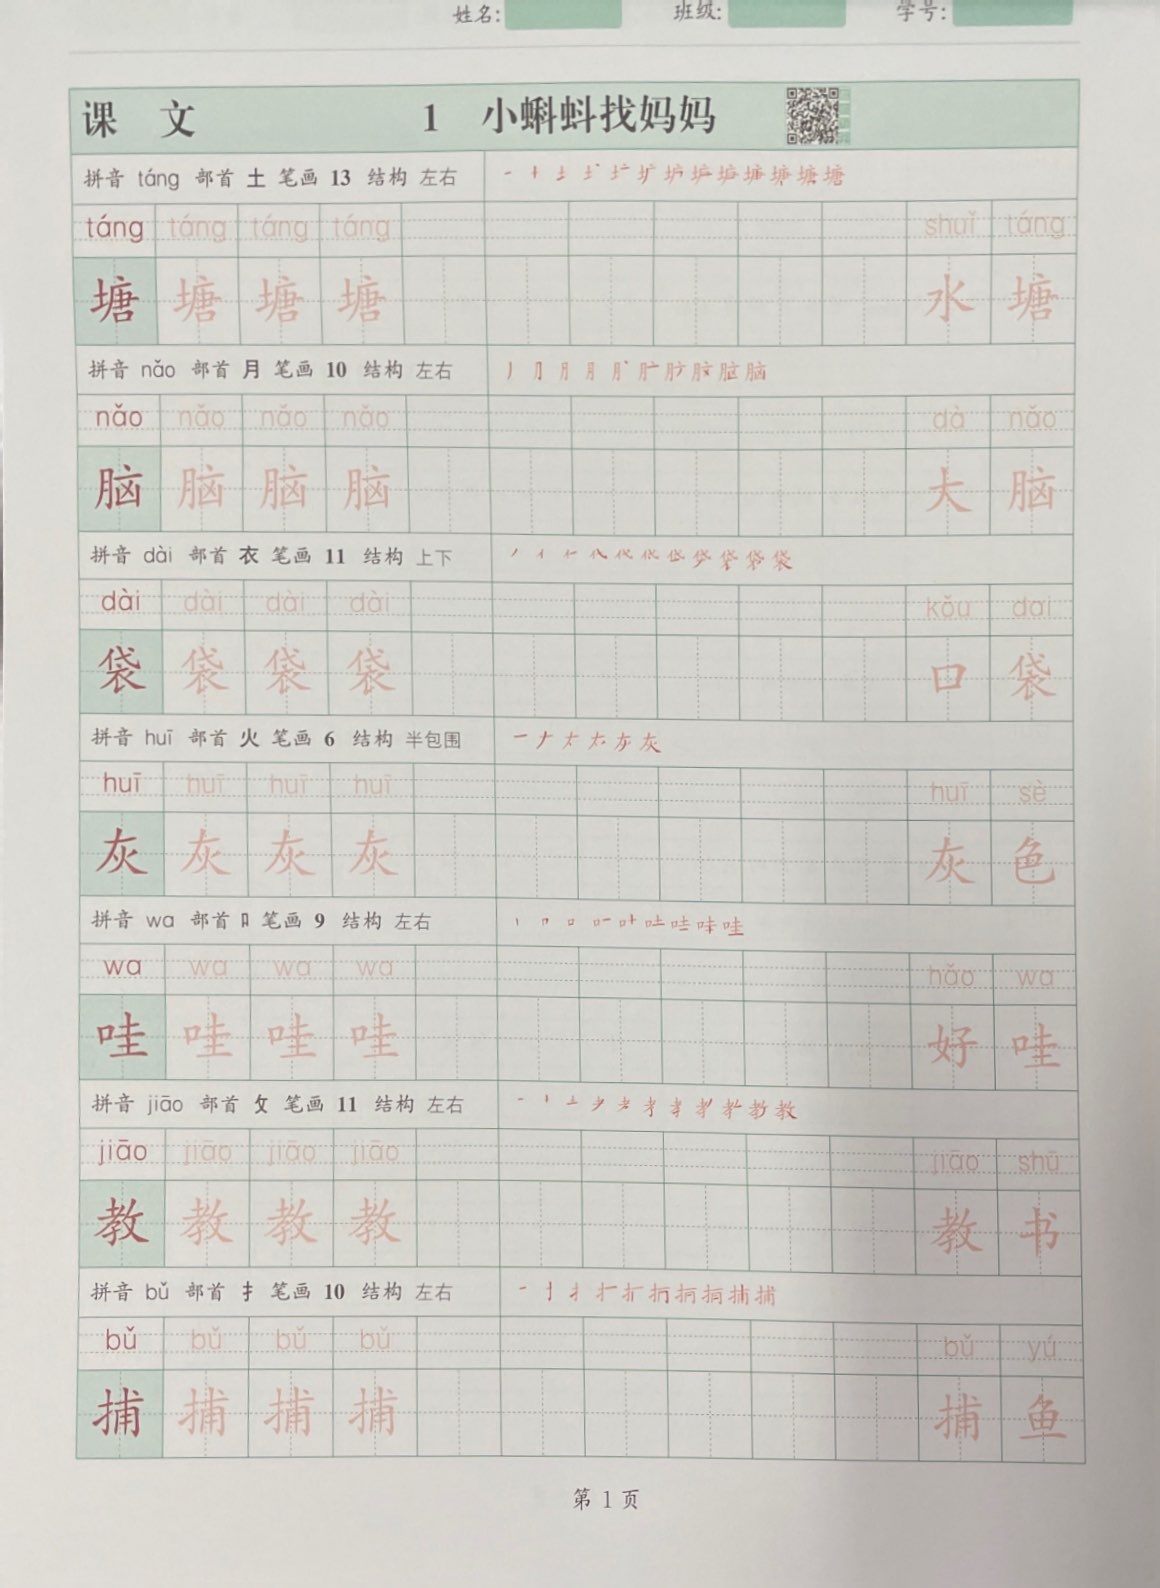 姓名: 班级: 学号:
课 文 1 小蝌蚪找妈妈
拼音 táng 部首 土 笔画 13 结构 左右
táng táng táng táng shuǐ táng
塘 塘 塘 塘 水 塘
拼音 nǎo 部首 月 笔画 10 结构 左右
nǎo nǎo nǎo nǎo dà nǎo
脑 脑 脑 脑 大 脑
拼音 dài 部首 衣 笔画 11 结构 上下
dài dài dài dài kǒu dai
袋 袋 袋 袋 口 袋
拼音 huī 部首 火 笔画 6 结构 半包围
huī huī huī huī huī sè
灰 灰 灰 灰 灰 色
拼音 wa 部首 口 笔画 9 结构 左右
wa wa wa wa hǎo wa
哇 哇 哇 哇 好 哇
拼音 jiāo 部首 攵 笔画 11 结构 左右
jiāo jiāo jiāo jiāo jiāo shū
教 教 教 教 教 书
拼音 bǔ 部首 扌 笔画 10 结构 左右
bǔ bǔ bǔ bǔ bǔ yú
捕 捕 捕 捕 捕 鱼
第 1 页